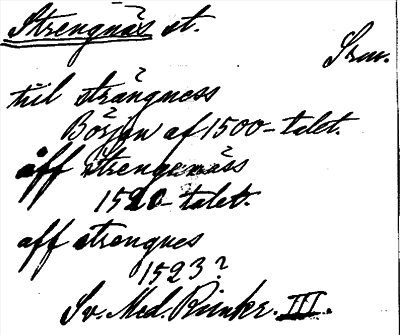 Strengnäs st.
Srm.
till strängness
Början af 1500-talet.
åff strengenäss
1520-talet.
aff strengnes
1523?
Sv. Med. Runkr. III.